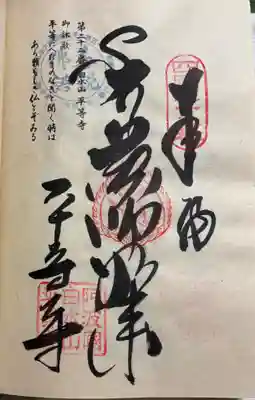 奉納
薬師如来
平等寺
第二十二番 白水山 平等寺
御詠歌
平等にへだてのなきと聞く時は
あら頼もしき仏とぞみる
阿波國
白水山